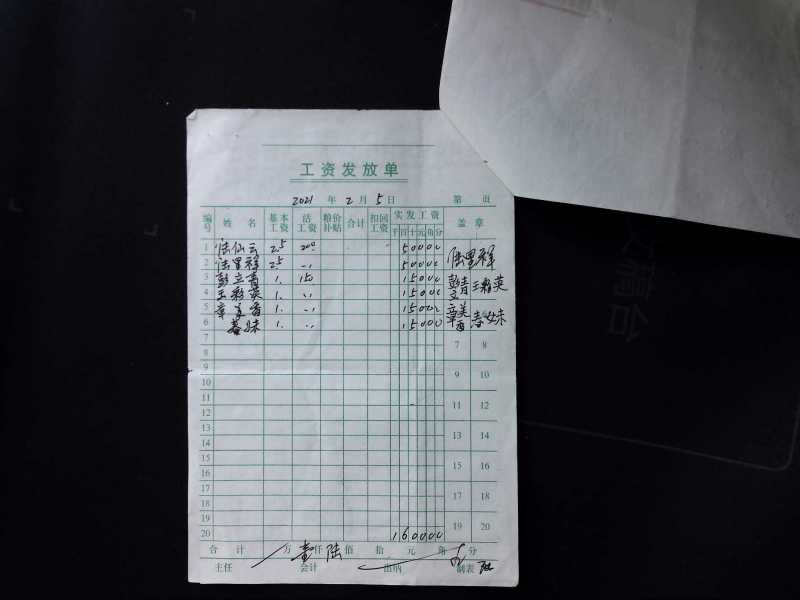 工资发放单
2021 年 2 月 5 日 第 页
编号 姓名 基本工资 活工资 粮价补贴 合计 扣回工资 实发工资 千百十元角分 盖章
1 陆仙云 2.5 200 50000
2 陆里祥 2.5 〃 50000 陆里祥
3 彭立青 1. 150 15000 彭立青 王彩英
4 王彩英 1. 〃 15000
5 章美香 1. 〃 15000 章美香 春妹
6 春妹 1. 〃 15000
7 7 8
8
9 9 10
10
11 11 12
12
13 13 14
14
15 15 16
16
17 17 18
18
19 19 20
20 160000
合计 万壹仟陆佰 拾 元 角 分
主任 会计 出纳 制表